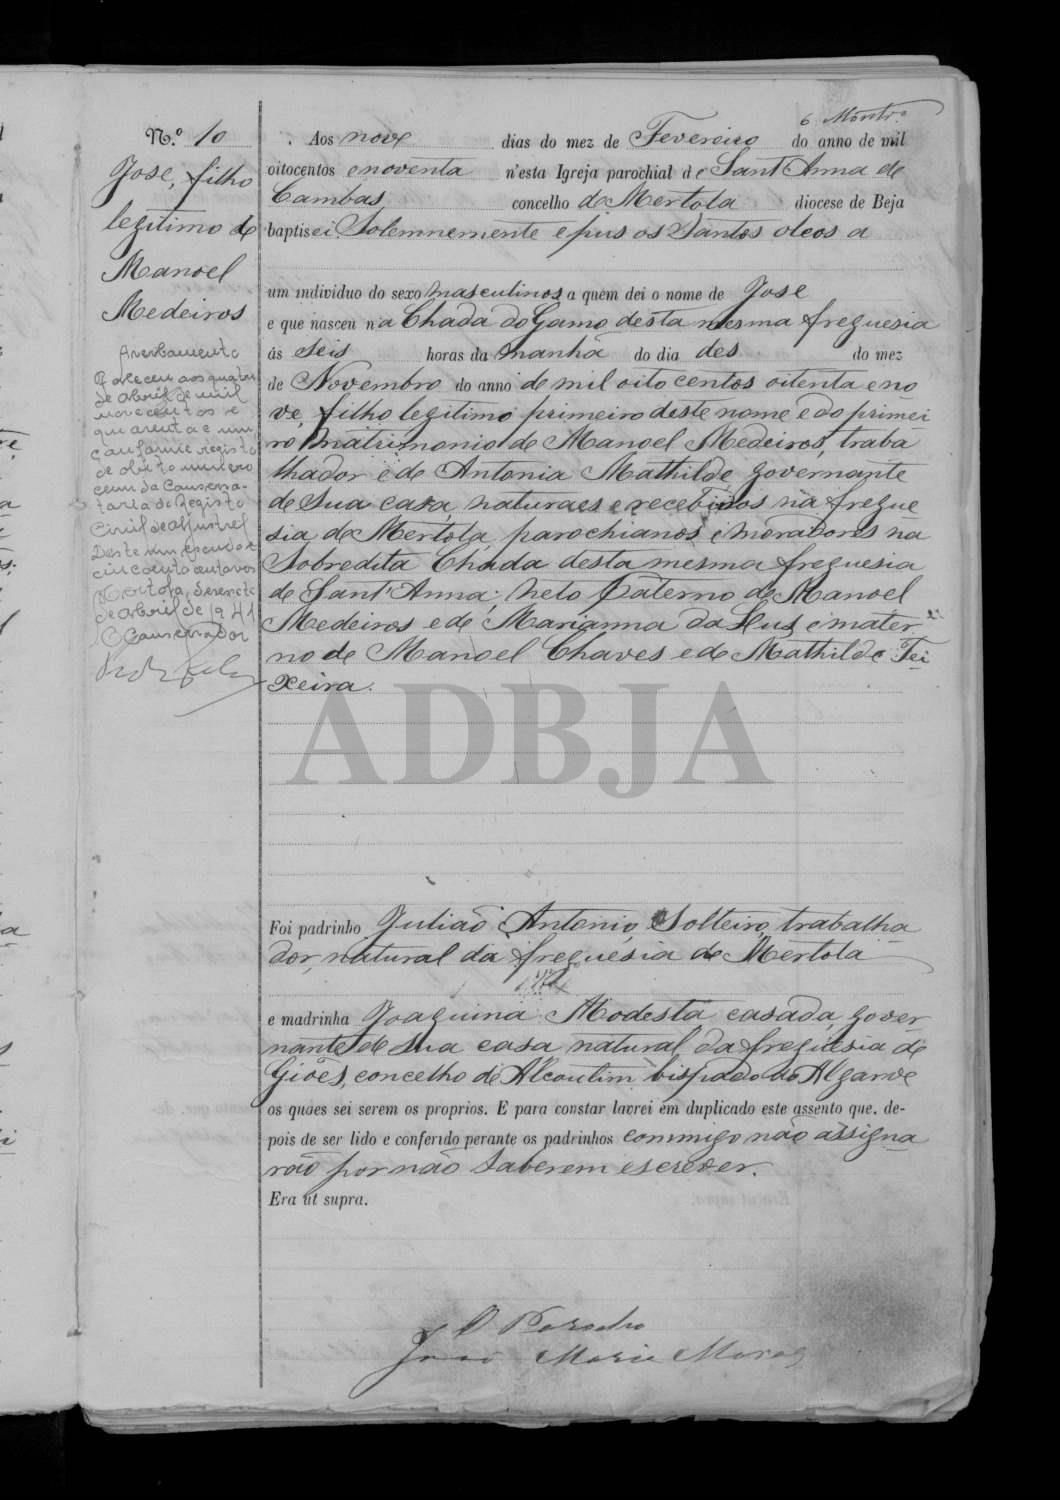 Nº 10
José, filho
legitimo de
Manoel
Medeiros
Averbamento
Faleceu aos quatro
de Abril de mil
novecentos e
quarenta e um
conforme registo
de obito numero
cem da Conserva-
toria do Registo
Civil de Aljustrel
Deste um escudo e
cincoenta centavos
Mertola, dezesete
de Abril de 1941
O Conservador
Aos nove dias do mez de Fevereiro do anno de mil
oitocentos e noventa n'esta Igreja parochial de Sant'Anna de
Cambas concelho de Mertola diocese de Beja
baptisei Solemnemente e puz os Santos oleos a
um individuo do sexo masculinos a quem dei o nome de José
e que nasceu na Chada do Gamo desta mesma freguesia
ás seis horas da manhã do dia des do mez
de Novembro do anno de mil oito centos oitenta e no
ve, filho legitimo primeiro deste nome e do primei
ro matrimonio de Manoel Medeiros, traba
lhador e de Antonia Mathilde, governante
de sua casa naturaes e recebidos na fregue
sia de Mertola, parochianos e moradores na
Sobredita Chada desta mesma freguesia
de Sant'Anna; neto Paterno de Manoel
Medeiros e de Marianna da Luz e mater
no de Manoel Chaves e de Mathilde Tei
xeira.
ADBJA
Foi padrinho Julião Antonio, Solteiro, trabalha
dor, natural da freguesia de Mertola
e madrinha Joaquina Modesta casada, gover
nante de sua casa natural da freguesia de
Giões, concelho de Alcoutim bispado do Algarve
os quaes sei serem os proprios. E para constar lavrei em duplicado este assento que, de-
pois de ser lido e conferido perante os padrinhos commigo não assigna
rão por não saberem escrever.
Era ut supra.
O Parocho
José Maria